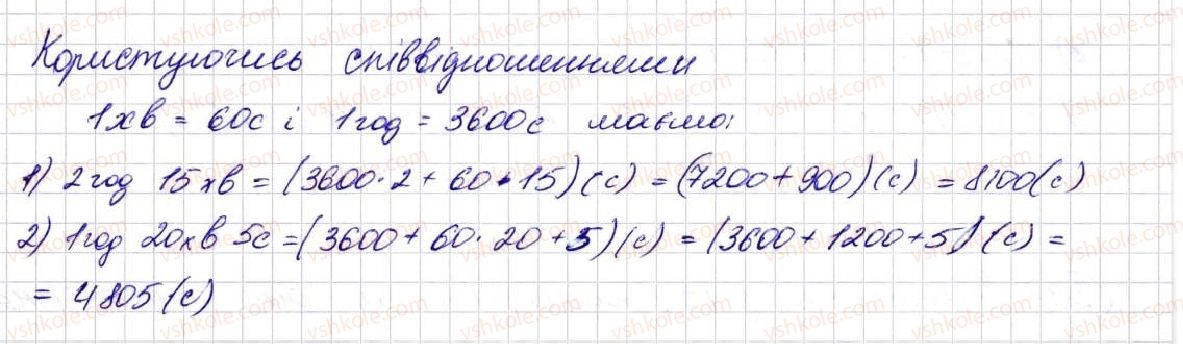 Користуючись співвідношеннями
1хв = 60с і 1год = 3600с маємо:
1) 2год 15хв = (3600·2 + 60·15)(с) = (7200 + 900)(с) = 8100(с)
2) 1год 20хв 5с = (3600 + 60·20 + 5)(с) = (3600 + 1200 + 5)(с) =
= 4805(с)